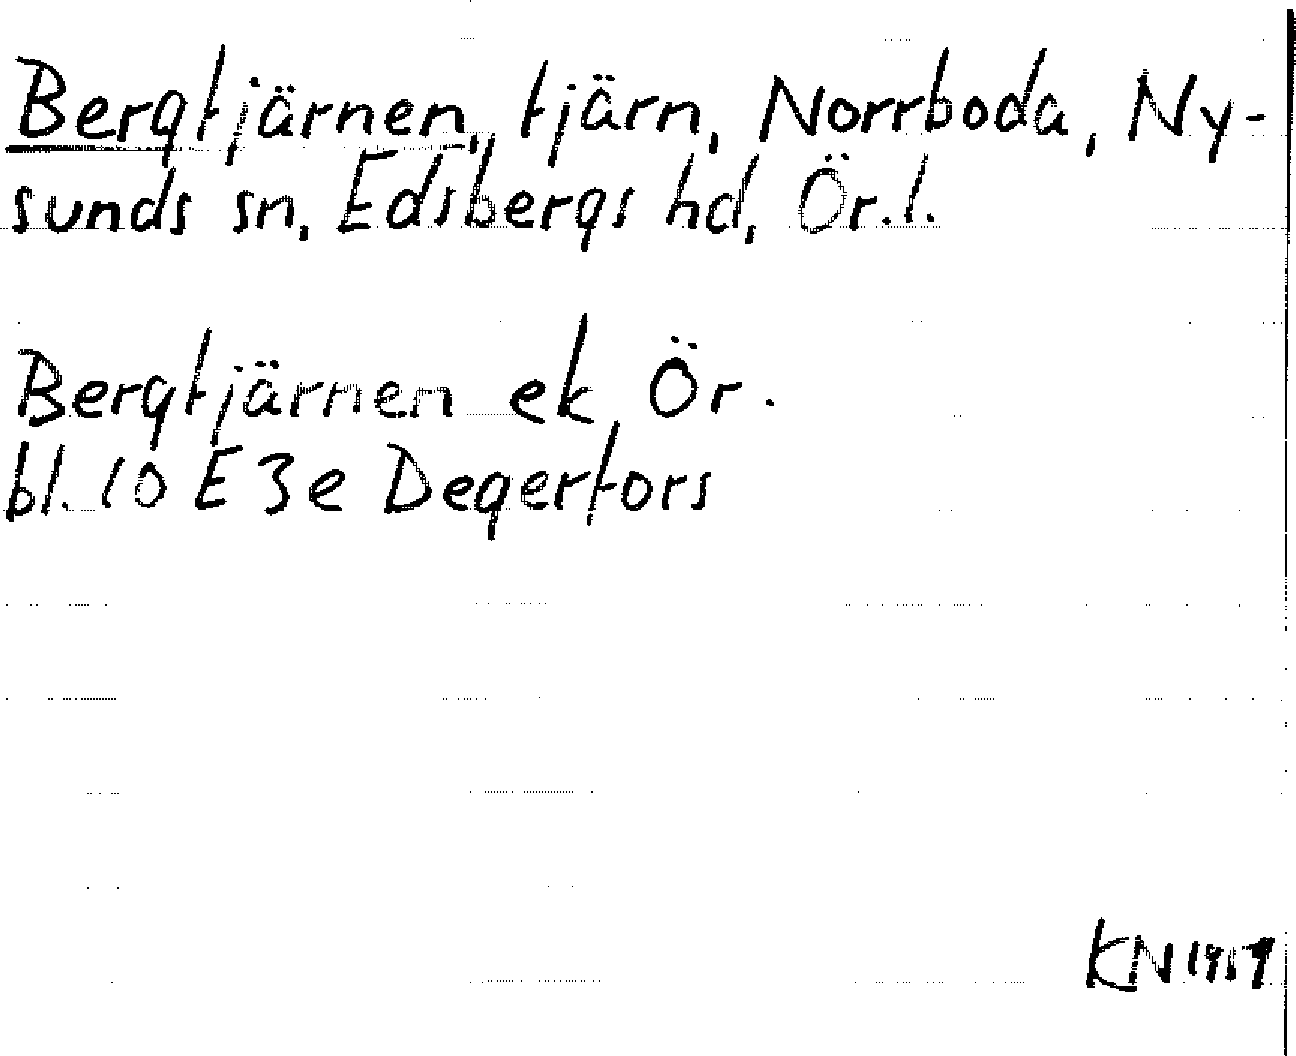 Bergtjärnen, tjärn, Norrboda, Ny-
sunds sn, Edsbergs hd, Ör.l.
Bergtjärnen ek Ör.
bl. 10 E 3e Degerfors
KN